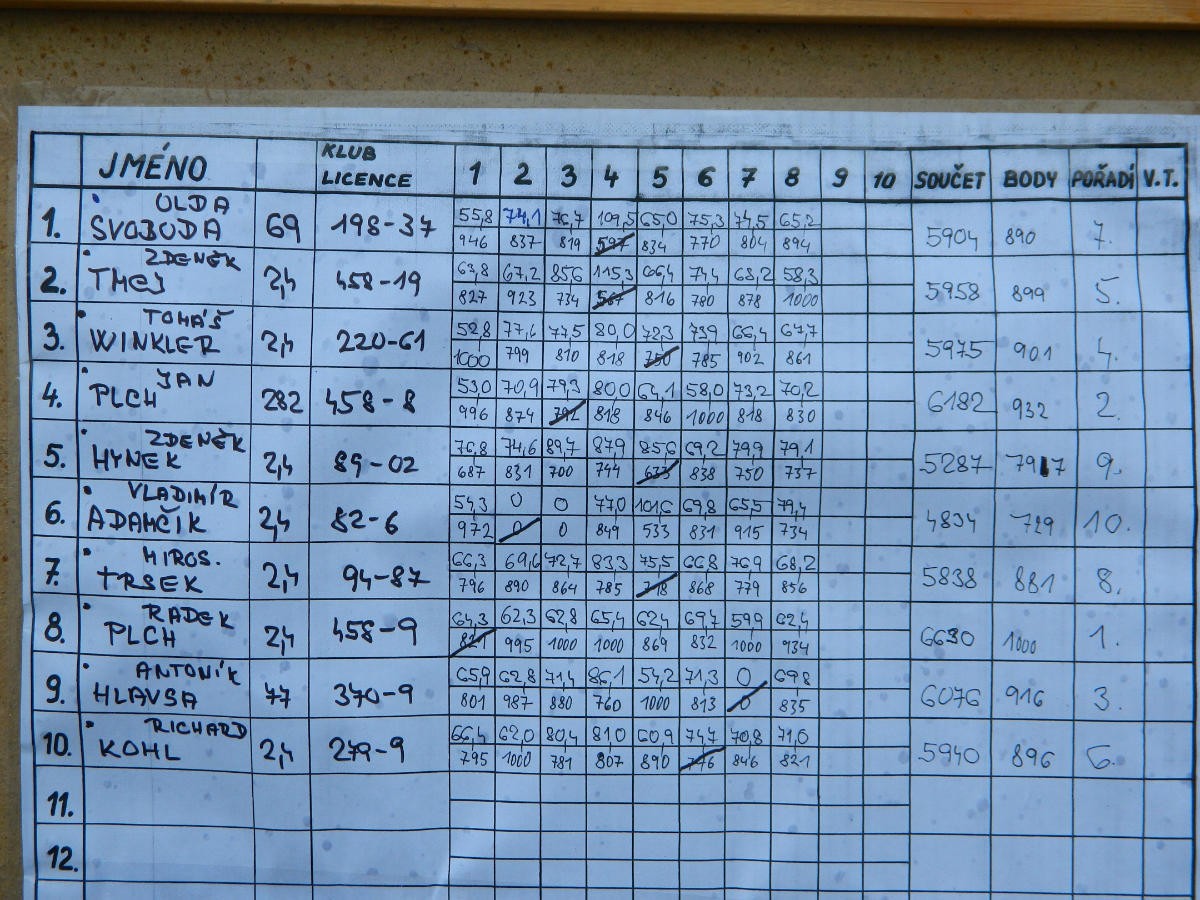 JMÉNO KLUB LICENCE 1 2 3 4 5 6 7 8 9 10 SOUČET BODY POŘADÍ V.T.
1. OLDA SVOBODA 69 198-37 55,8 74,1 76,7 109,5 65,0 75,3 74,5 65,2
946 837 819 597 834 770 804 894 5904 890 7.
2. ZDENĚK TMEJ 2,4 458-19 63,8 67,2 85,6 115,3 66,4 74,4 68,2 58,3
827 923 734 567 816 780 878 1000 5958 899 5.
3. TOMÁŠ WINKLER 2,4 220-61 52,8 77,6 77,5 80,0 72,3 73,9 66,4 67,7
1000 799 810 818 750 785 902 861 5975 901 4.
4. JAN PLCH 282 458-8 53,0 70,9 79,3 80,0 64,1 58,0 73,2 70,2
996 874 792 818 846 1000 818 830 6182 932 2.
5. ZDENĚK HYNEK 2,4 89-02 76,8 74,6 89,7 87,9 85,6 69,2 79,9 79,1
687 831 700 744 633 838 750 737 5287 797 9.
6. VLADIMÍR ADAMČÍK 2,4 82-6 54,3 0 0 77,0 101,6 69,8 65,5 79,4
972 0 0 849 533 831 915 734 4834 729 10.
7. MIROS. TRSEK 2,4 94-87 66,3 69,6 72,7 83,3 75,5 66,8 76,9 68,2
796 890 864 785 718 868 779 856 5838 881 8.
8. RADEK PLCH 2,4 458-9 64,3 62,3 62,8 65,4 62,4 69,7 59,9 62,4
821 995 1000 1000 869 832 1000 934 6630 1000 1.
9. ANTONÍK HLAVSA 77 370-9 65,9 62,8 71,4 86,1 54,2 71,3 0 69,8
801 987 880 760 1000 813 0 835 6076 916 3.
10. RICHARD KOHL 2,4 279-9 66,4 62,0 80,4 81,0 60,9 74,7 70,8 71,0
795 1000 781 807 890 776 846 821 5940 896 6.
11.
12.